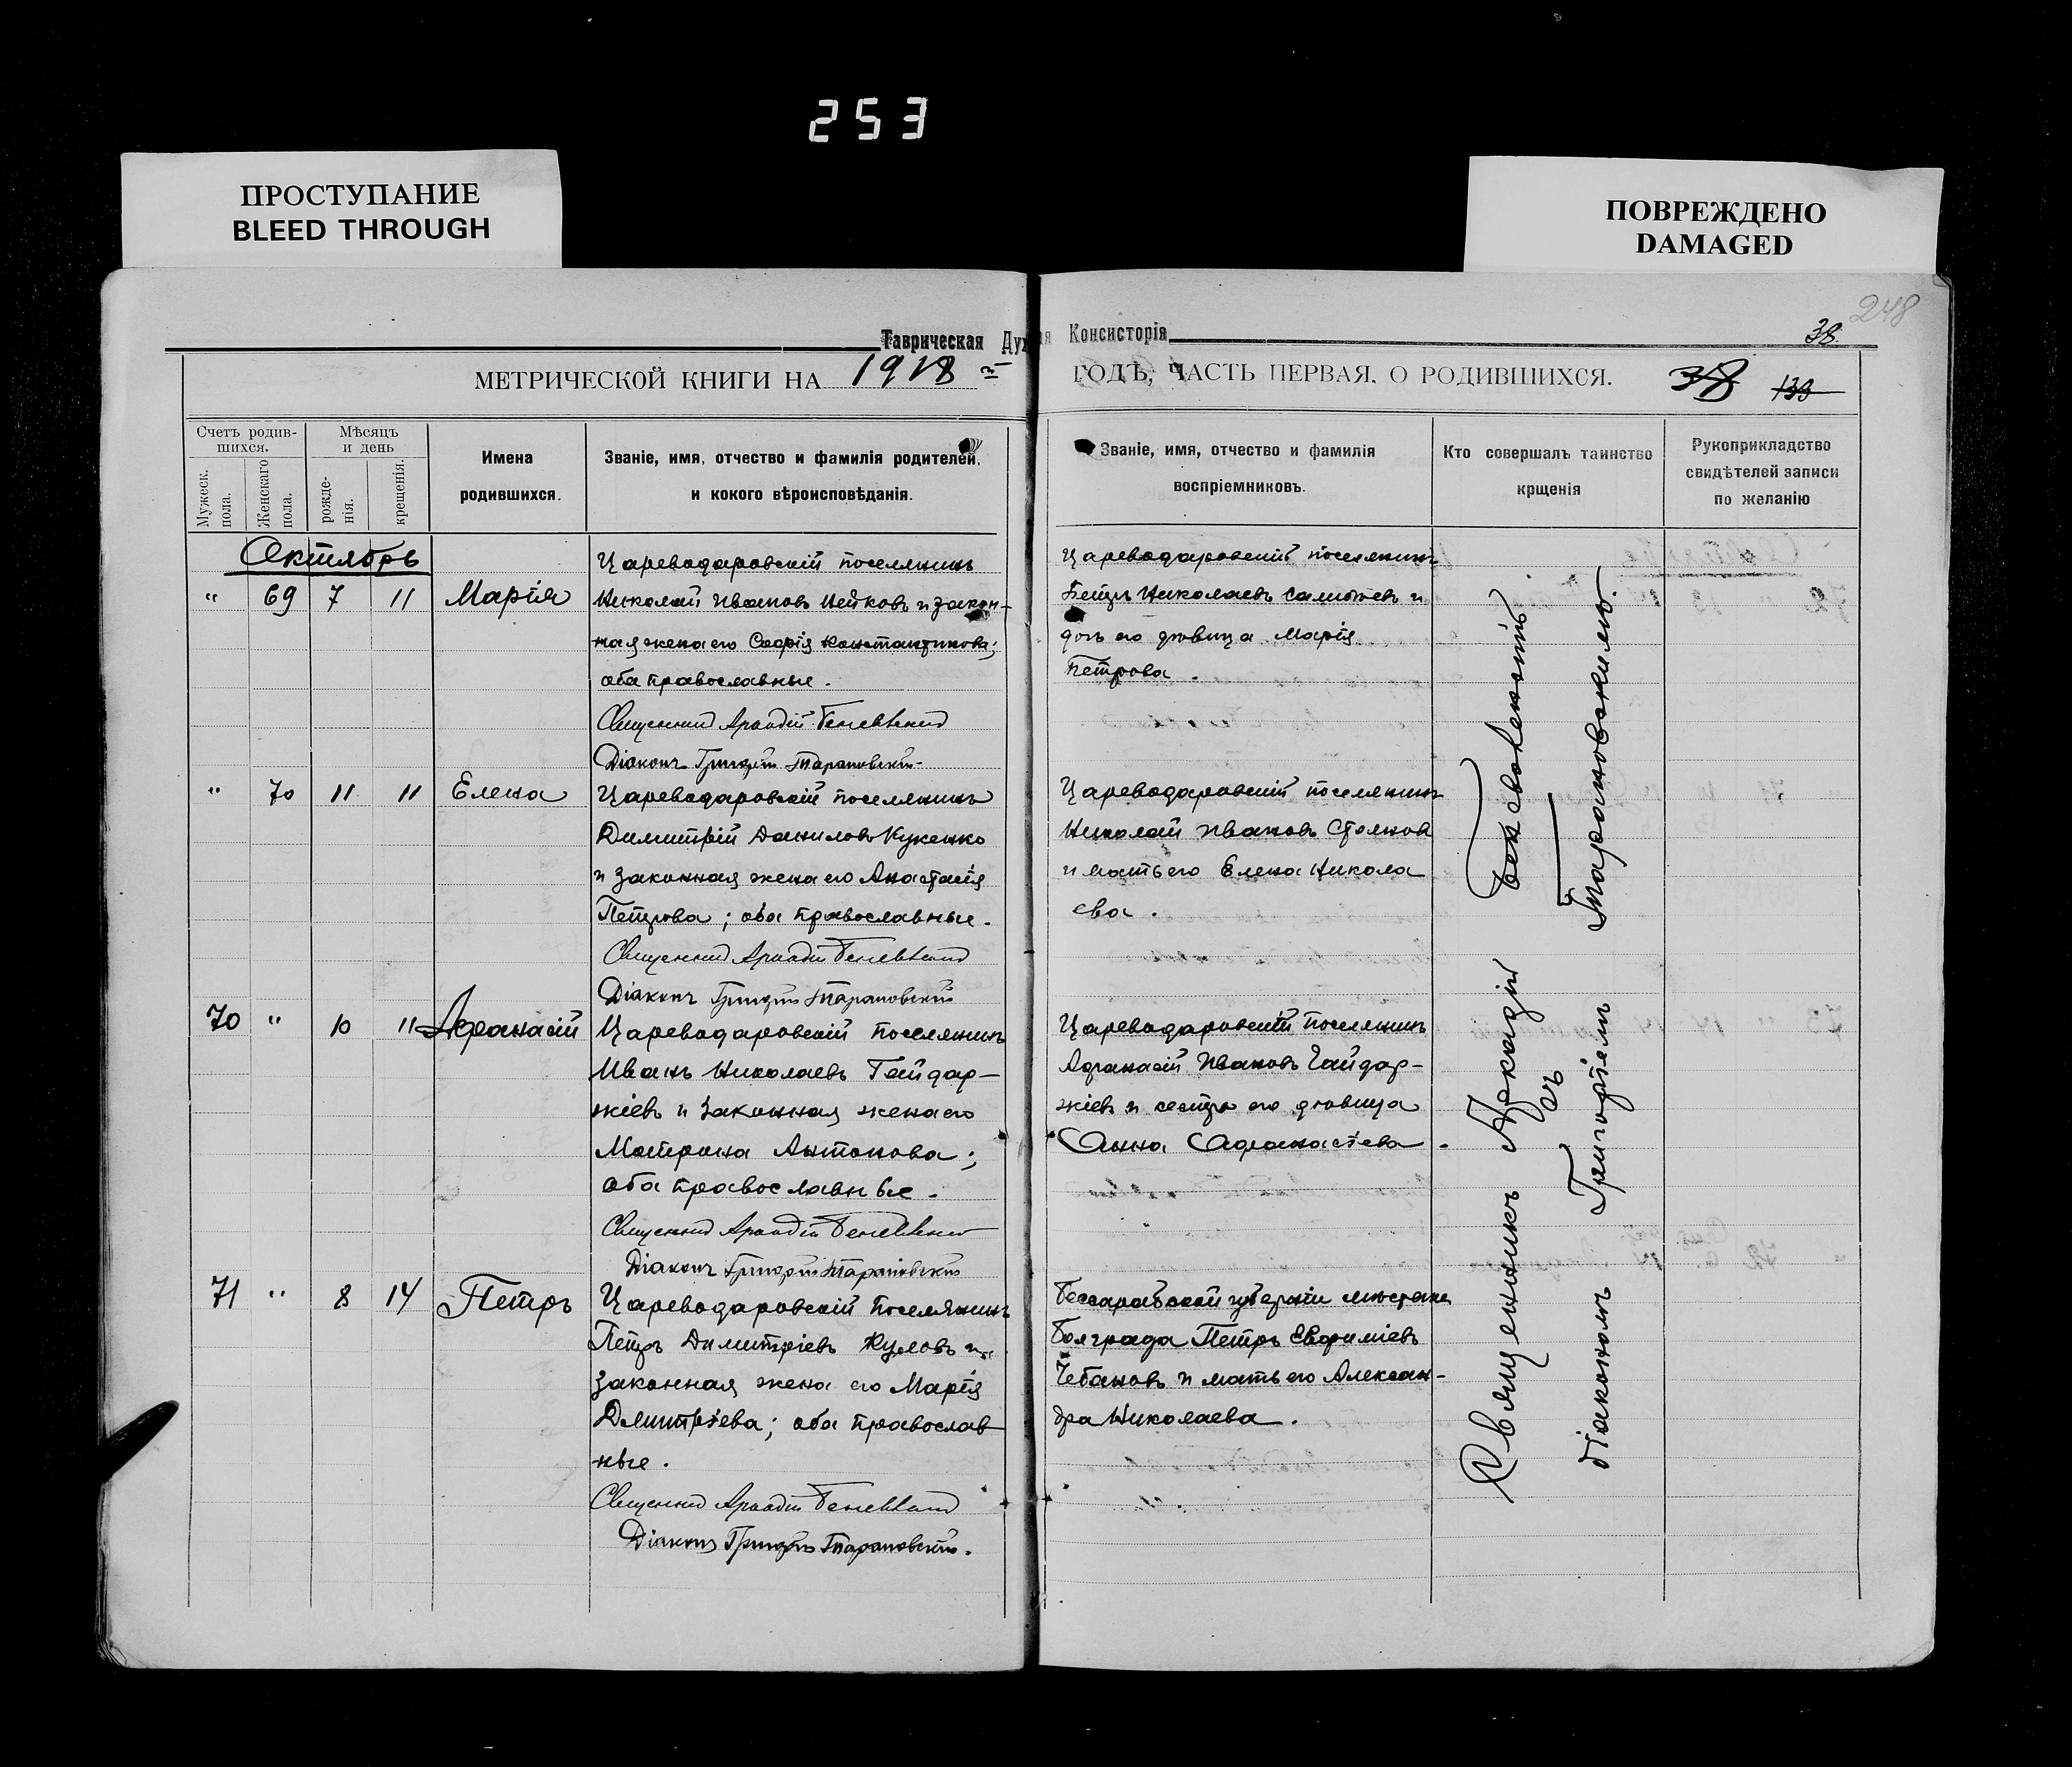 253
ПРОСТУПАНИЕ
BLEED THROUGH
ПОВРЕЖДЕНО
DAMAGED
248
Таврическая Дух ая Консисторія
38.
МЕТРИЧЕСКОЙ КНИГИ НА 1918 ГОДЪ, ЧАСТЬ ПЕРВАЯ. О РОДИВШИХСЯ. 38 139
Счетъ родив-
шихся.
Мужеск. пола.
Женскаго пола.
Мѣсяцъ
и день
рожде-
нія.
крещенія.
Имена
родившихся.
Званіе, имя, отчество и фамилія родителей,
и кокого вѣроисповѣданія.
Званіе, имя, отчество и фамилія
воспріемниковъ.
Кто совершалъ таинство
крщенія
Рукоприкладство
свидѣтелей записи
по желанію
Октябрь
" 69 7 11 Марія
Цареводаровскій поселянинъ
Николай Ивановъ Нейковъ и закон-
ная жена его Софія Константинова;
оба православные.
Священник Аркадій Беневский
Діаконъ Григорій Тарановскій
Цареводаровскій поселянинъ
Петръ Николаевъ и
дочь его дѣвица Марія
Петрова.
" 70 11 11 Елена
Цареводаровскій поселянинъ
Димитрій Даниловъ Куженко
и законная жена его Анастасія
Петрова; оба православные.
Священник Аркадій
Діаконъ Григорій Тарановскій
Цареводаровскій поселянинъ
Николай Ивановъ Стоянов
и мать его Елена Никола
ева.
70 " 10 11 Афанасій
Цареводаровскій поселянинъ
Иванъ Николаевъ Гайдар-
жіевъ и законная жена его
Матрона Антонова;
оба православные.
Священник Аркадій
Діаконъ Григорій Тарановскій
Цареводаровскій поселянинъ
Афанасій Ивановъ Гайдар-
жіевъ и сестра его дѣвица
Анна Афанасіева.
71 " 8 14 Петръ
Цареводаровскій поселянинъ
Петръ Димитріевъ Куловъ и
законная жена его Марія
Дмитріева; оба православ
ные.
Священник Аркадій
Діаконъ Григорій Тарановскій.
Бессарабской губерніи
Болграда Петръ Евфиміевъ
Чебановъ и мать его Алексан-
дра Николаева.
Священникъ Аркадій
съ
діакономъ Григоріемъ Тарановскимъ.